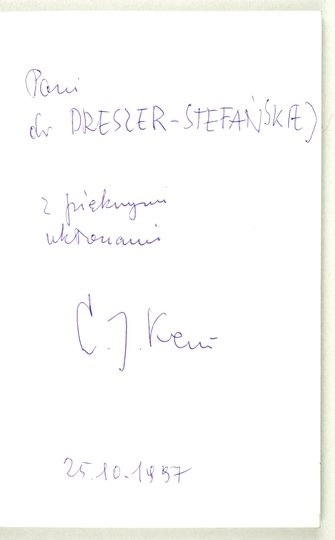 Pani
dr DRESZER-STEFAŃSKIEJ
z pięknymi
ukłonami
C. J. Kern
25.10.1997